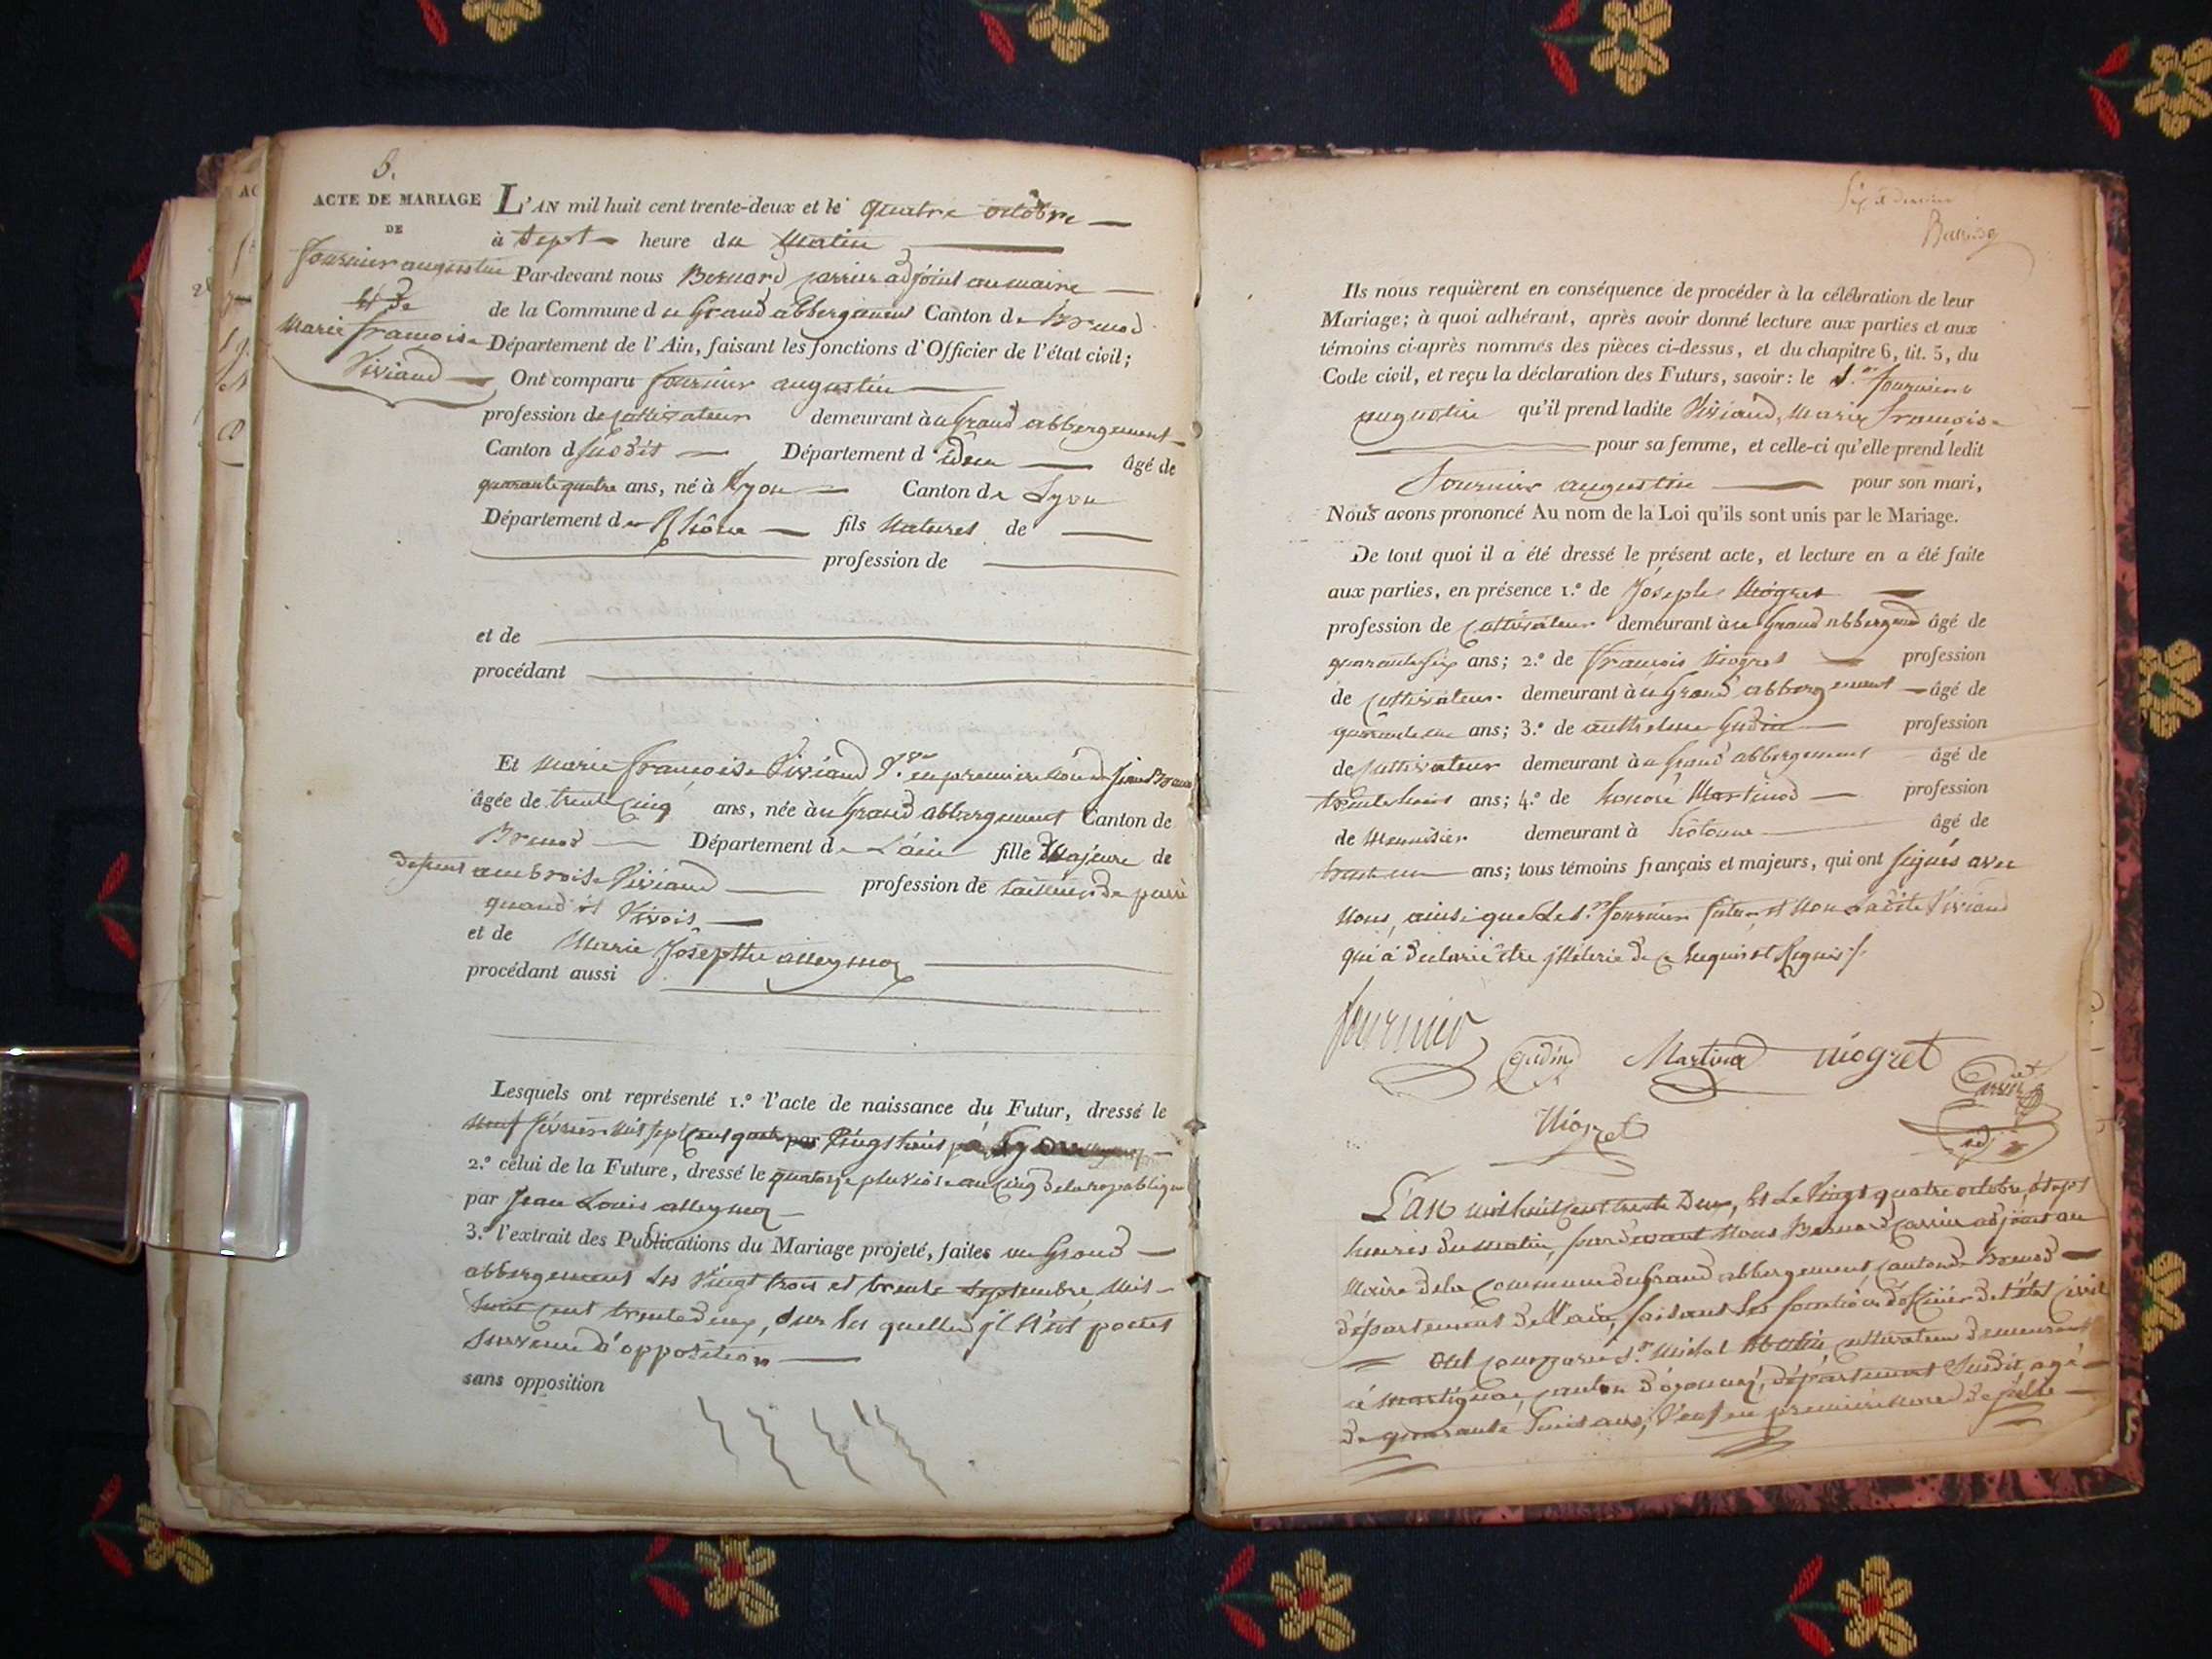 6.
ACTE DE MARIAGE
DE
fournier augustin
Et De
Marie françoise
Viviand
L'AN mil huit cent trente-deux et le quatre octobre
à Sept heure du Matin
Par-devant nous Bernard carrier adjoint au maire
de la Commune du Grand abbergement Canton de Brenod
Département de l'Ain, faisant les fonctions d'Officier de l'état civil;
Ont comparu fournier augustin
profession de cultivateur demeurant au Grand abbergement
Canton d susdit Département d idem âgé de
quarante quatre ans, né à Lyon Canton de Lyon
Département du Rhône fils Naturel de
profession de
et de
procédant
Et Marie françoise Viviand V.ve en premiere Nôce de
âgée de trente cinq ans, née au Grand abbergement Canton de
Brenod Département de L'ain fille Majeure de
defunt ambroise Viviand profession de tailleur de pierre
quand il Vivois
et de Marie Josephte allegmoz
procédant aussi
Lesquels ont représenté 1.º l'acte de naissance du Futur, dressé le
Neuf février mil sept cent quatre Vingt huit
2.º celui de la Future, dressé le quatorze pluviose an cinq de la republique
par Jean Louis allegmoz
3.º l'extrait des Publications du Mariage projeté, faites au Grand
abbergement les Vingt trois et trente septembre, Mil
huit cent trente deux, sur les quelles il N'est point
survenu d'opposition
sans opposition
Ils nous requièrent en conséquence de procéder à la célébration de leur
Mariage; à quoi adhérant, après avoir donné lecture aux parties et aux
témoins ci-après nommés des pièces ci-dessus, et du chapitre 6, tit. 5, du
Code civil, et reçu la déclaration des Futurs, savoir: le S.r fournier
augustin qu'il prend ladite Viviand, Marie françoise
pour sa femme, et celle-ci qu'elle prend ledit
Fournier augustin pour son mari,
Nous avons prononcé Au nom de la Loi qu'ils sont unis par le Mariage.
De tout quoi il a été dressé le présent acte, et lecture en a été faite
aux parties, en présence 1.º de Joseph Niogret
profession de cultivateur demeurant au Grand abbergement âgé de
quarante six ans; 2.º de françois Niogret profession
de cultivateur demeurant au Grand abbergement âgé de
quarante un ans; 3.º de anthelme Gudin profession
de cultivateur demeurant au Grand abbergement âgé de
trente trois ans; 4.º de honoré Martinod profession
de Menuisier demeurant à hotonne âgé de
trente un ans; tous témoins français et majeurs, qui ont signés avec
Nous, ainsi que le S.r fournier futur, et Non Ladite Viviand
qui a declaré être illiterée de ce enquis et Requis
fournier
Gudin Martinod niogret
Niogret
L'an mil huit cent trente Deux, Et Le Vingt quatre octobre, à sept
heures du matin, pardevant Nous Bernard Carrier adjoint au
Maire de la Commune du Grand abbergement, canton de Brenod
département de l'ain, faisant Les fonctions d'officier de l'état civil
ont comparu S.r Michel cultivateur demeurant
à Martignat, canton d'oyonnax, département susdit, agé
de quarante huit ans, Veuf en premiere Noce de